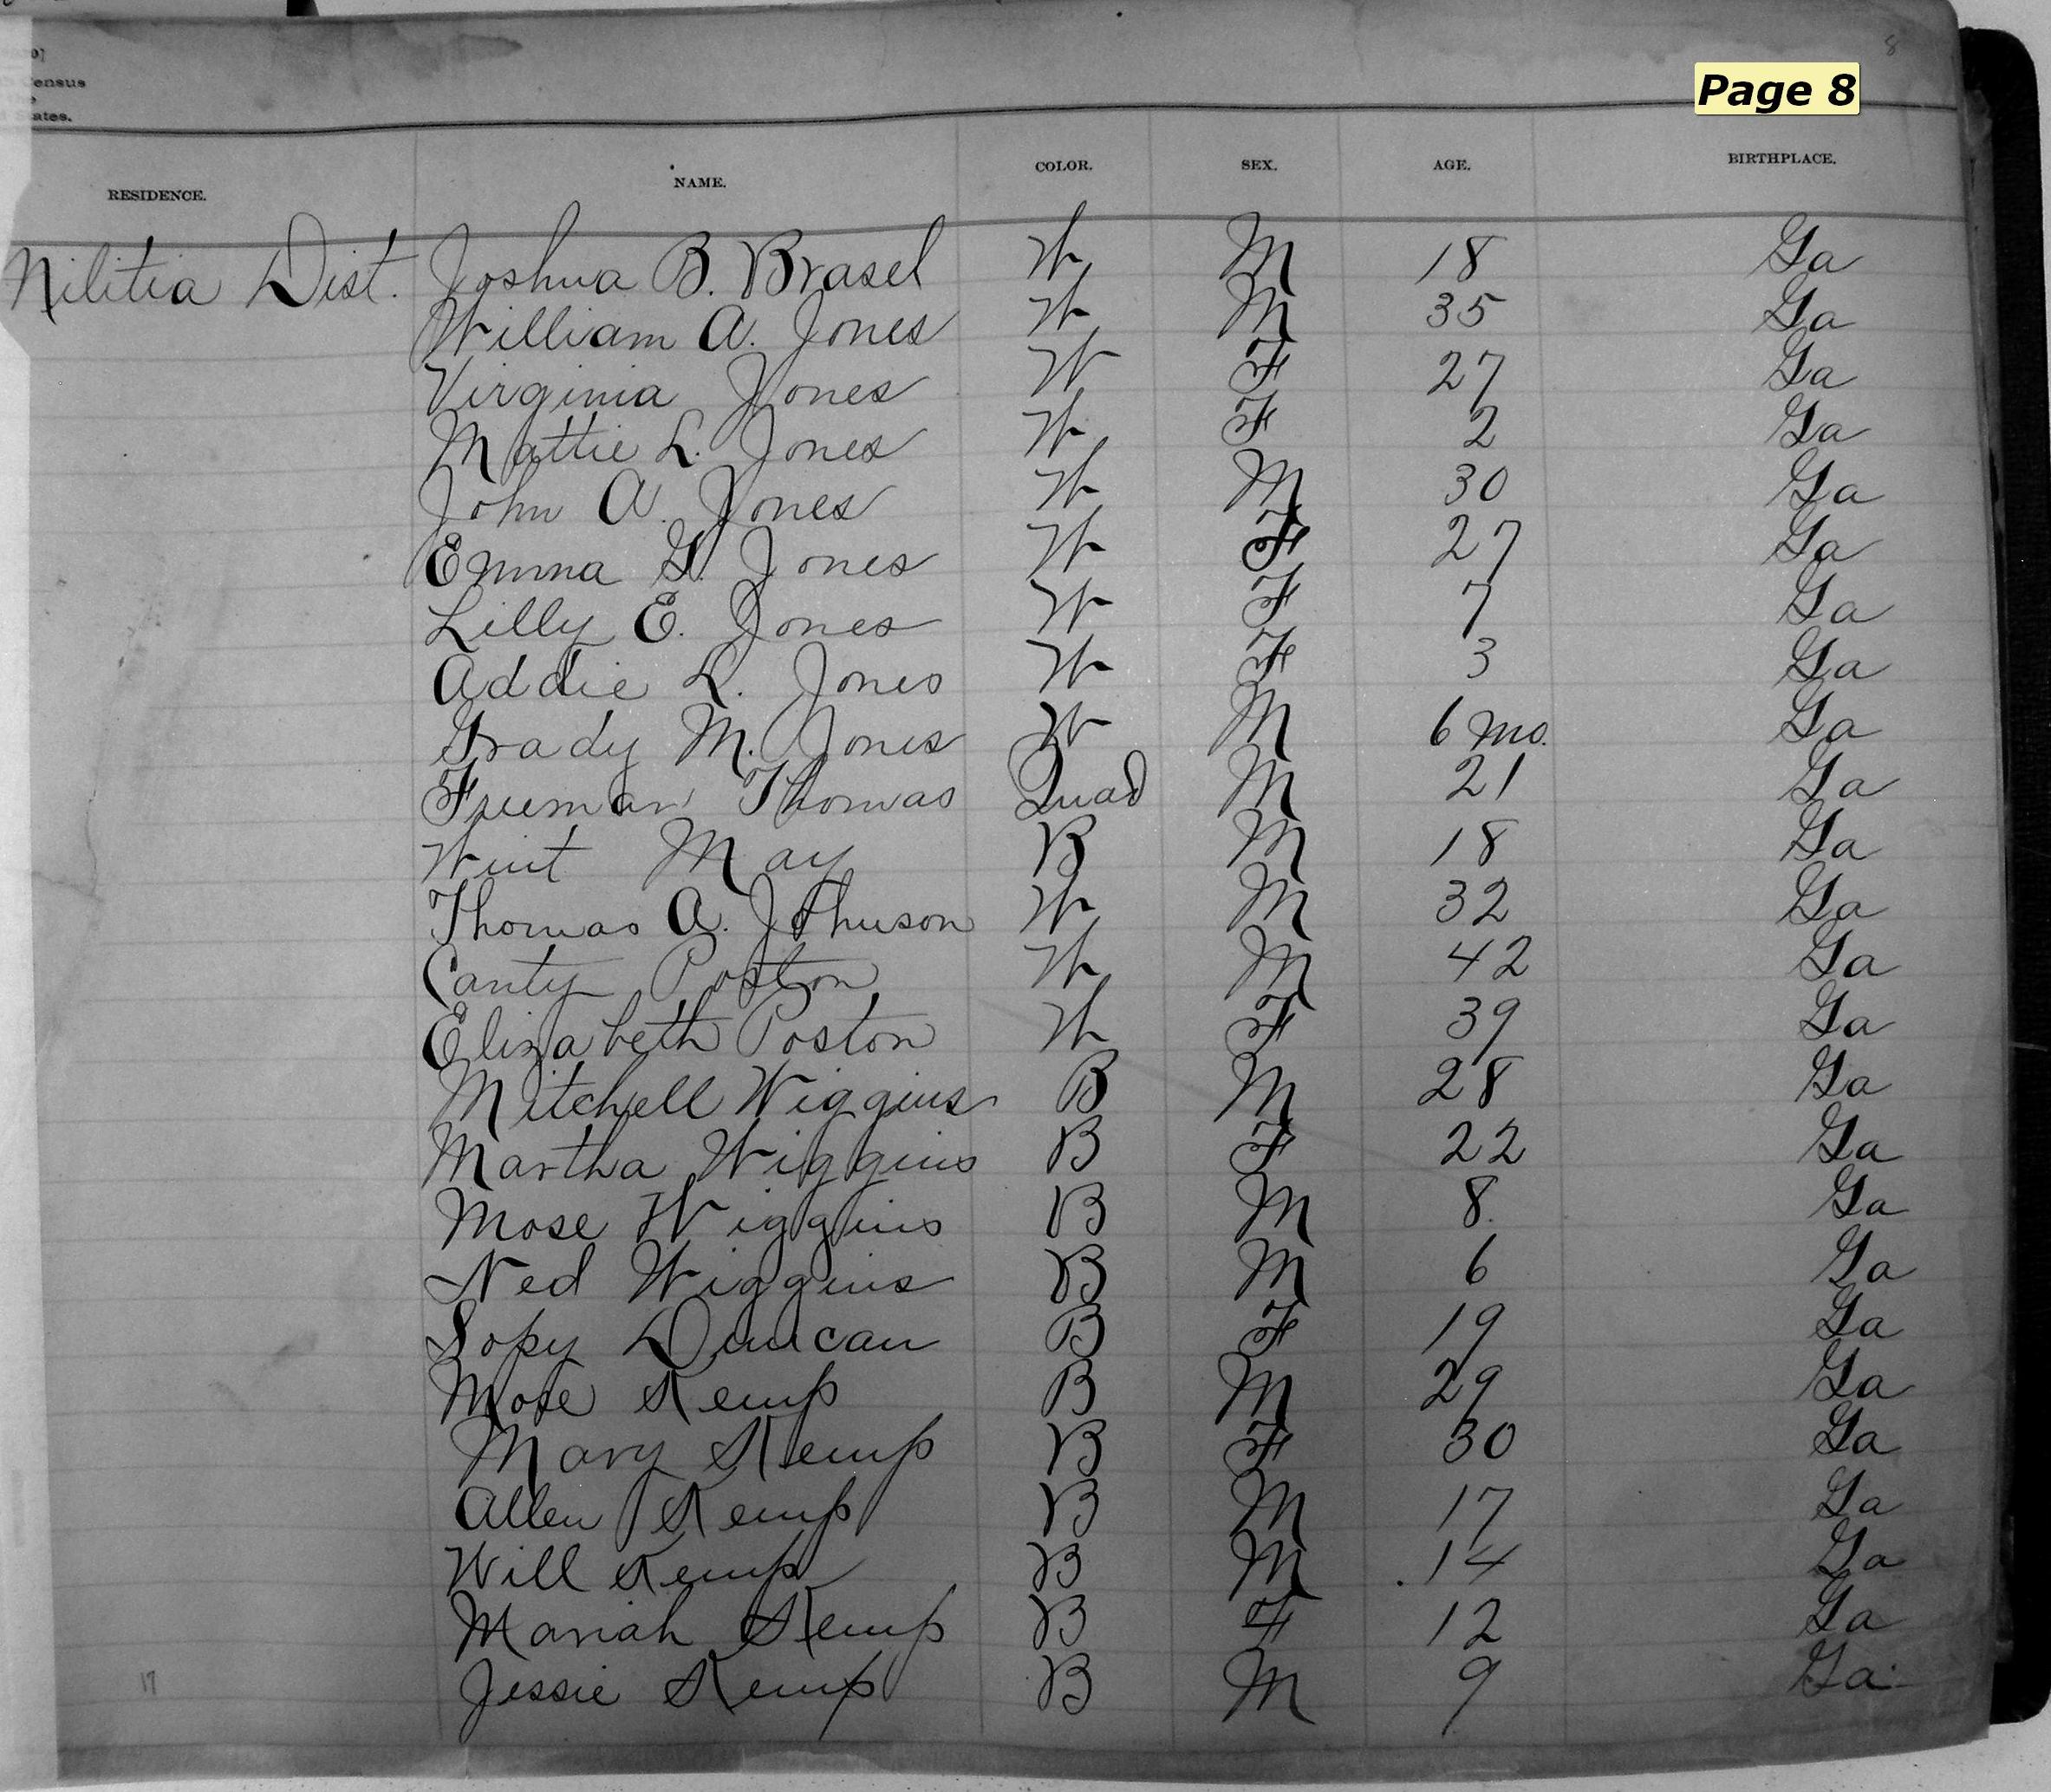 Census
States.
Page 8
8
RESIDENCE. NAME. COLOR. SEX. AGE. BIRTHPLACE.
Militia Dist. Joshua B. Brasel W M 18 Ga
William A. Jones W M 35 Ga
Virginia Jones W F 27 Ga
Mattie L. Jones W F 2 Ga
John A. Jones W M 30 Ga
Emma G. Jones W F 27 Ga
Lilly E. Jones W F 7 Ga
Addie L. Jones W F 3 Ga
Grady M. Jones W M 6 mo. Ga
Freeman Thomas Quad M 21 Ga
May B M 18 Ga
Thomas A. Johnson W M 32 Ga
Canty Poston W M 42 Ga
Elizabeth Poston W F 39 Ga
Mitchell Wiggins B M 28 Ga
Martha Wiggins B F 22 Ga
Mose Wiggins B M 8 Ga
Ned Wiggins B M 6 Ga
Sopy Duncan B F 19 Ga
Mose Kemp B M 29 Ga
Mary Kemp B F 30 Ga
Allen Kemp B M 17 Ga
Will Kemp B M 14 Ga
Mariah Kemp B F 12 Ga
17 Jessie Kemp B M 9 Ga